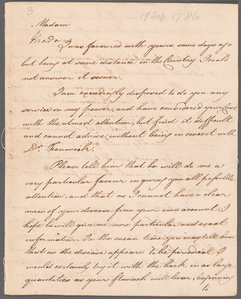 3
19 Sep 1786
Madam
I was favoured with yours some days ago
but being at some distance in the Country I could
not answer it sooner.
I am exceedingly disposed to do you any
service in my power, and have considered your Case
with the utmost attention, but find it difficult
and cannot advise without being in concert with
Dr.
Please tell him that he will do me a
very particular favour in giving you all possible
attention, and that as I cannot have a clear
view of your disease from your own account I
hope he will give me some particular and exact
information. In the mean time you may tell him
that as the disease appears to be periodical I
would certainly try it with the bark in as large
quantities as your stomach will bear, beginning
to